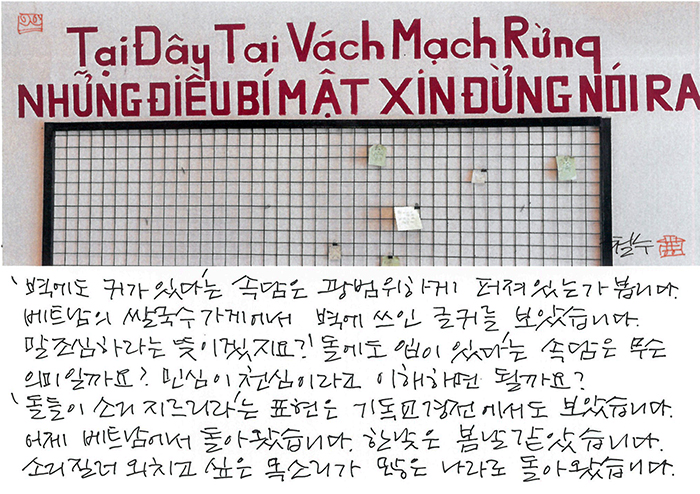 Tại Đây Tai Vách Mạch Rừng
NHỮNG ĐIỀU BÍ MẬT XIN ĐỪNG NÓI RA
철수
'벽에도 귀가 있다'는 속담은 광범위하게 퍼져있는가 봅니다.
베트남의 쌀국수가게에서 벽에 쓰인 글귀를 보았습니다.
말조심하라는 뜻이겠지요? '돌에도 입이 있다'는 속담은 무슨
의미일까요? 민심이 천심이라고 이해하면 될까요?
'돌들이 소리 지르리라'는 표현은 기독교경전에서도 보았습니다.
어제 베트남에서 돌아왔습니다. 한낮은 봄날같았습니다.
소리질러 외치고 싶은 목소리가 많은 나라로 돌아왔습니다.